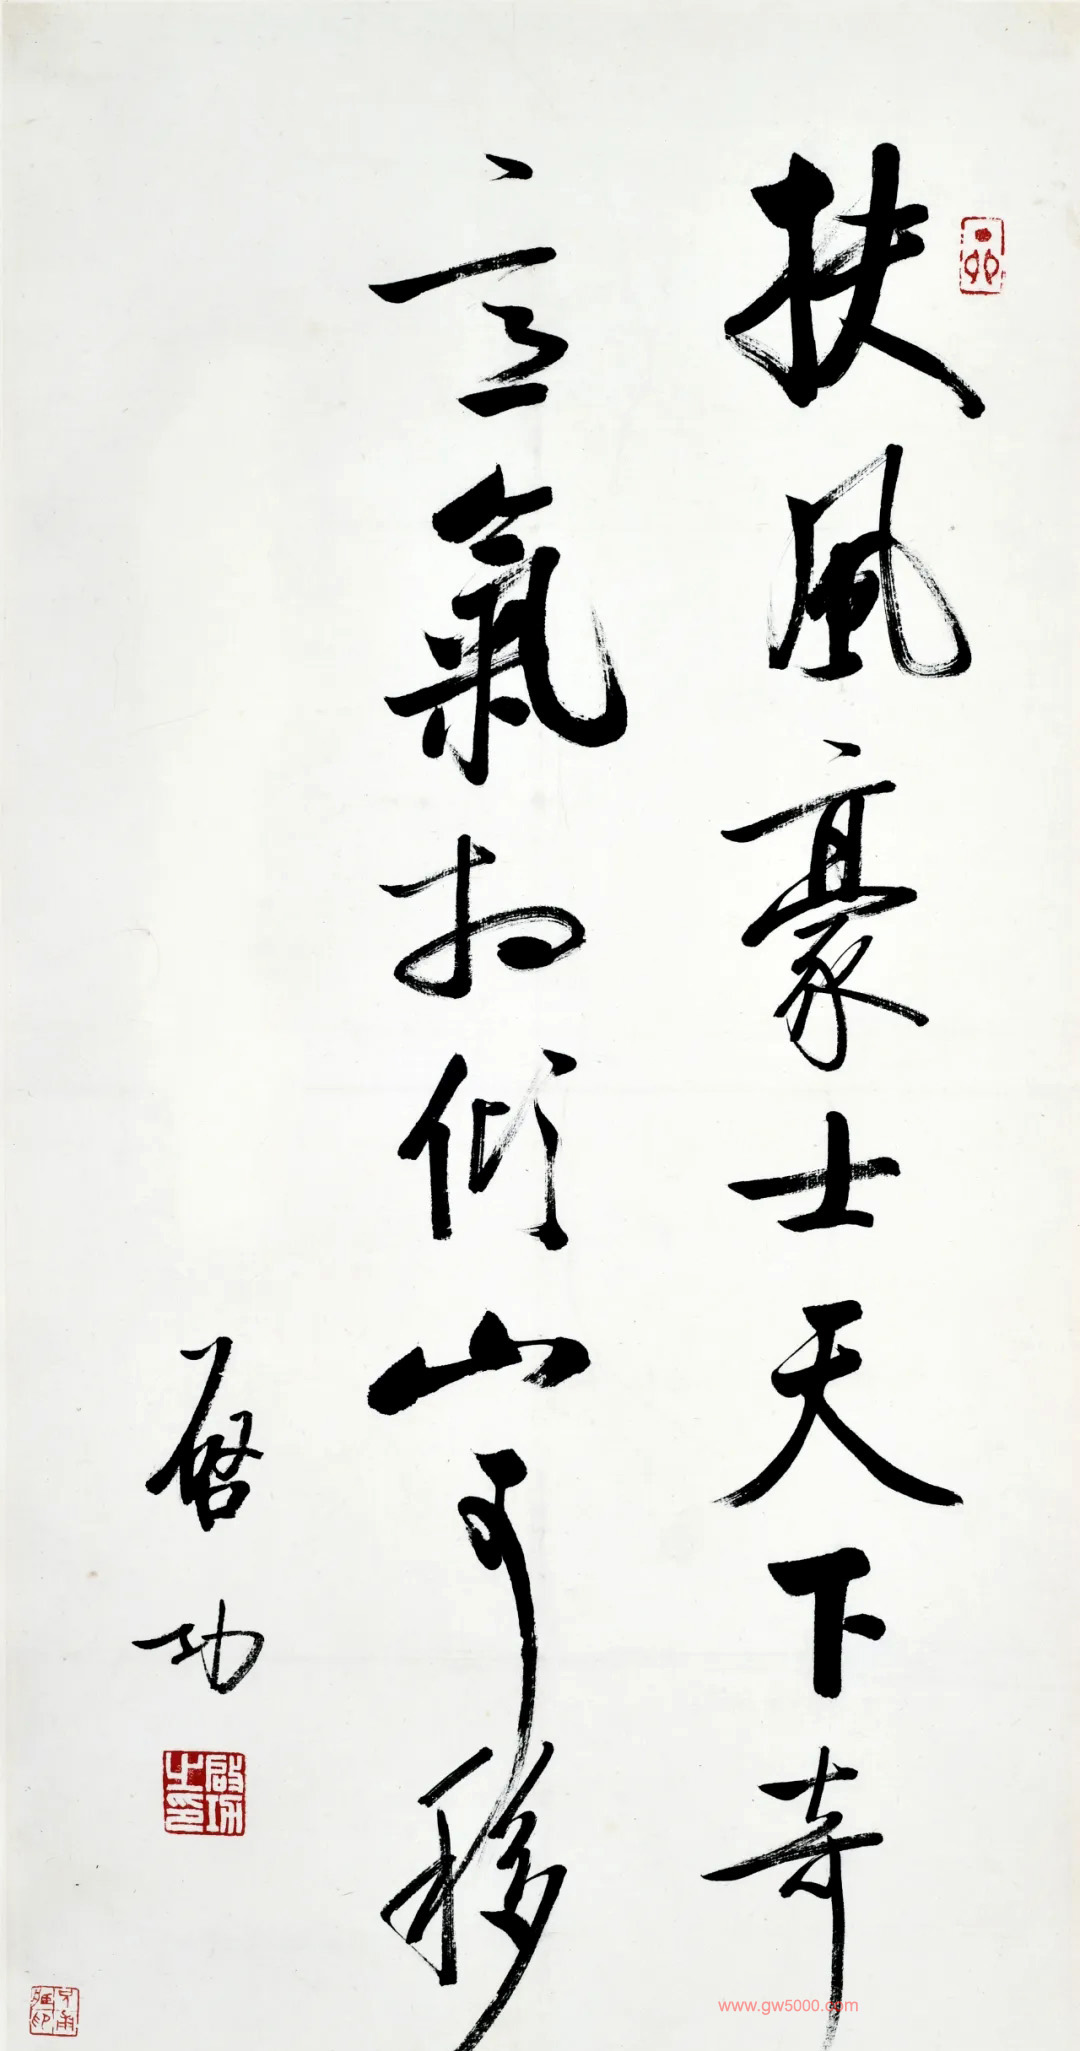 扶風豪士天下奇
意氣相傾山可移
啓功
啓功之印
www.gw5000.com